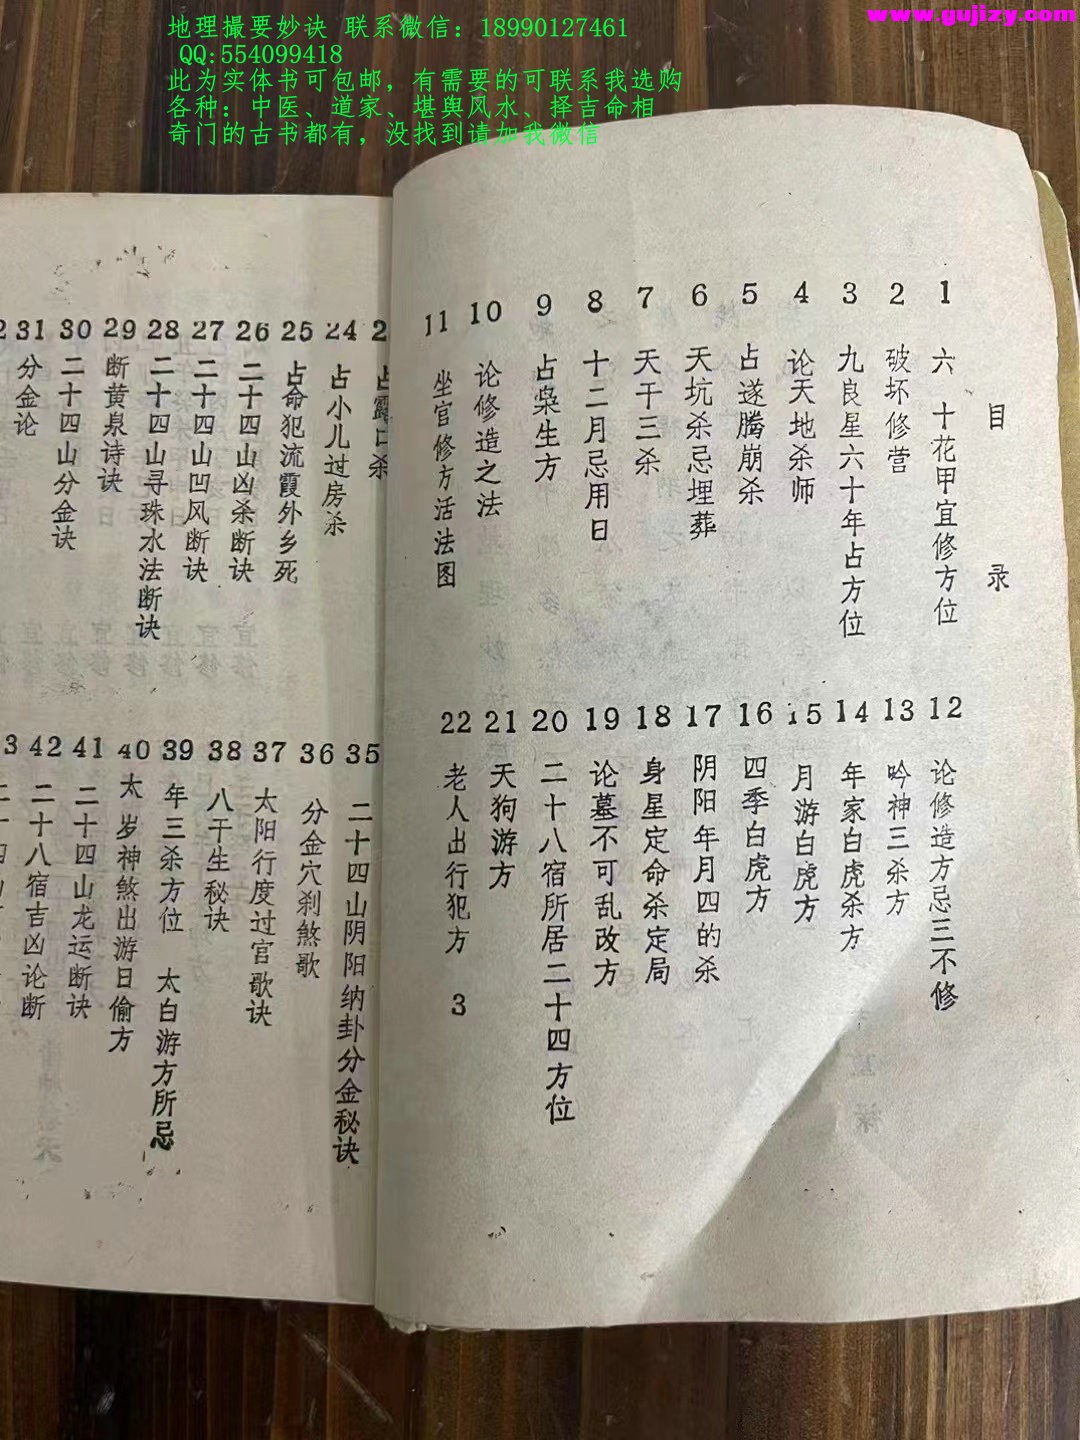 地理撮要妙诀 联系微信：18990127461
QQ:554099418
此为实体书可包邮，有需要的可联系我选购
各种：中医、道家、堪舆风水、择吉命相
奇门的古书都有，没找到请加我微信
www.gujizy.com
目 录
1 六十花甲宜修方位
2 破坏修营
3 九良星六十年占方位
4 论天地杀师
5 占遂腾崩杀
6 天坑杀忌埋葬
7 天干三杀
8 十二月忌用日
9 占枭生方
10 论修造之法
11 坐官修方活法图
12 论修造方忌三不修
13 吟神三杀方
14 年家白虎杀方
15 月游白虎方
16 四季白虎方
17 阴阳年月四的杀
18 身星定命杀定局
19 论墓不可乱改方
20 二十八宿所居二十四方位
21 天狗游方
22 老人出行犯方 3
占霞口杀
24 占小儿过房杀
25 占命犯流霞外乡死
26 二十四山凶杀断诀
27 二十四山凹风断诀
28 二十四山寻珠水法断诀
29 断黄泉诗诀
30 二十四山分金诀
31 分金论
35 二十四山阴阳纳卦分金秘诀
36 分金穴刹煞歌
37 太阳行度过官歌诀
38 八干生秘诀
39 年三杀方位 太白游方所忌
40 太岁神煞出游日偷方
41 二十四山龙运断诀
42 二十八宿吉凶论断